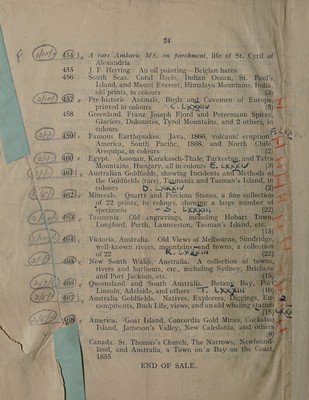 24
454 A rare Amharic MS. on parchment, life of St. Cyril of
Alexandria
455 J. F. Herring: An oil painting—Belgian hates
456 South Seas, Coral Reefs, Indian Ocean, St. Paul's
Island, and Mount Everest, Himalaya Mountains, India,
old prints, in colours (3)
457 Pre-historic Animals, Birds and Cavemen of Europe,
printed in colours C. LXXXIV (5)
458 Greenland, Franz Joseph Fjord and Petermann Spitze,
Glaciers, Dolomites, Tyrol Mountains, and 2 others, in
colours
459 Famous Earthquakes. Java, 1868, volcanic eruption
America, South Pacific, 1868, and North Chile
Arequipa, in colours (2)
460 Egypt. Assouan, Karakasch-Thale, Turkestan, and Tatra
Mountains, Hungary, all in colours E. LXXXIV (3)
461 Australian Goldfields, showing Incidents and Methods of
the Goldfields (rare), Tasmania and Tasman's Island, in
colours D. LXXXIV (2)
462 Minerals. Quartz and Precious Stones, a fine collection
of 22 prints, in colours, showing a large number of
specimens S. LXXXIII (22)
463 Tasmania. Old engravings, including Hobart Town,
Longford, Perth, Launceston, Tasman's Island, etc.
(15)
464 Victoria, Australia. Old Views of Melbourne, Sandridge,
well-known rivers, mountains and towns, a collection
of 22 R. LXXXIII (22)
465 New South Wales, Australia. A collection of towns,
rivers and harbours, etc., including Sydney, Brisbane
and Port Jackson, etc. (15)
466 Queensland and South Australia. Botany Bay, Port
Lincoln, Adelaide, and others T. LXXXIII (10)
467 Australia Goldfields. Natives, Explorers, Diggings, En-
campments, Bush Life, Views, and an old whaling station
(15)
468 America. Goat Island, Concordia Gold Mines, Cockatoo
Island, Jameson's Valley, New Caledonia, and others
(9)
Canada. St. Thomas's Church, The Narrows, Newfound-
land, and Australia, a Town on a Bay on the Coast
1855
END OF SALE.